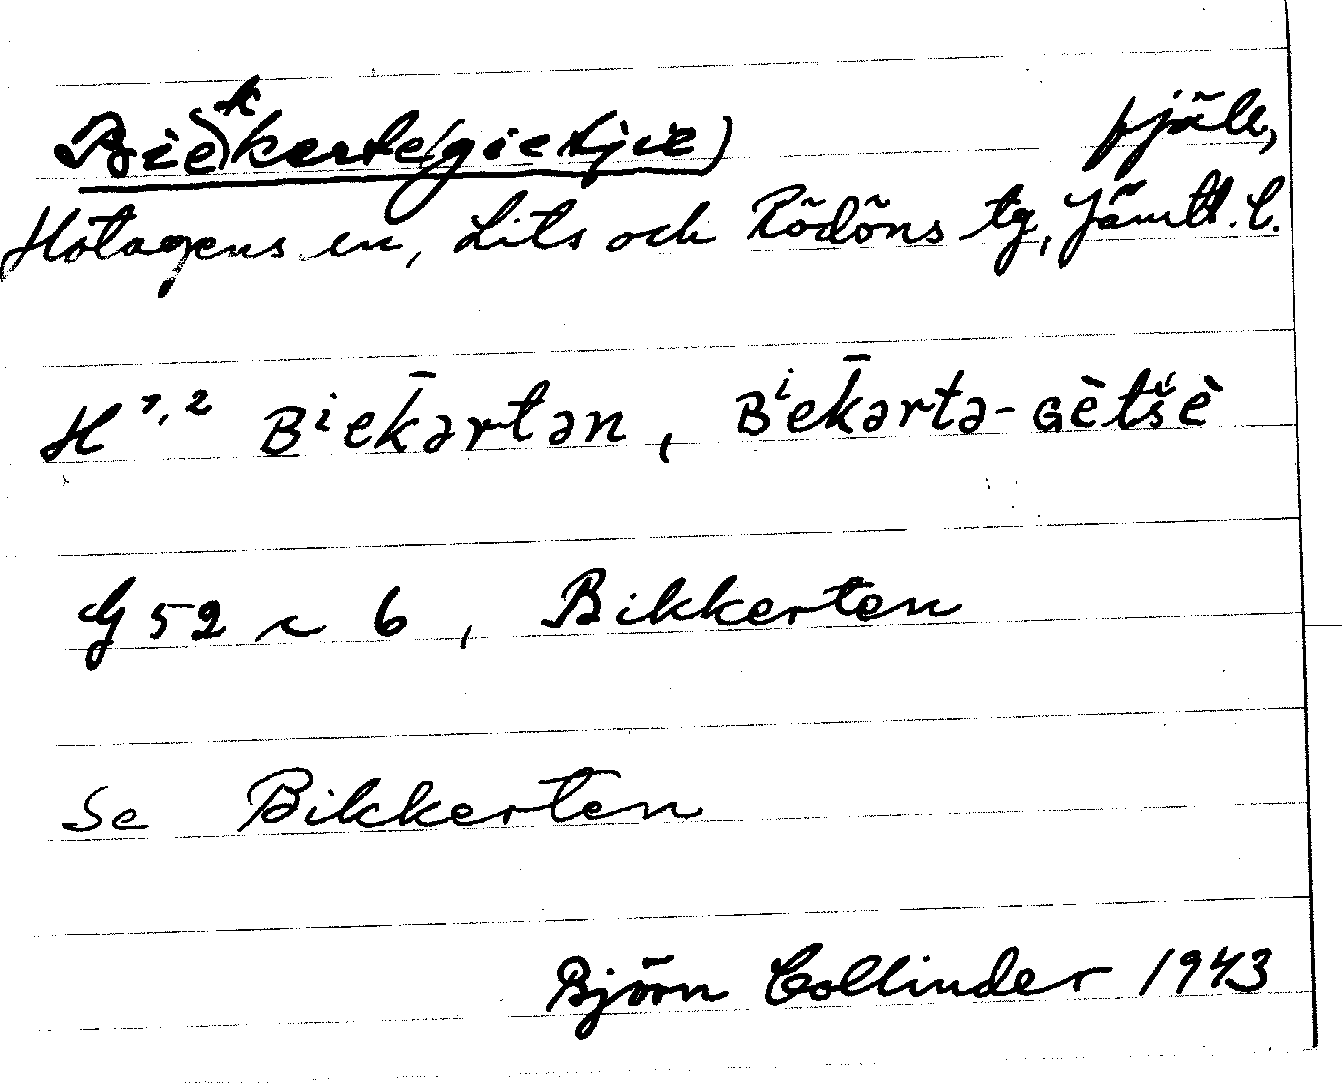 Biekkerte(gietjie) fjäll,
Hotagens sn, Lits och Rödöns tg, Jämtl. l.
H 1,2 Bⁱek̄ərtən, Bⁱek̄ərtə-Gètšè
G 52 r 6, Bikkerten
Se Bikkerten
Björn Collinder 1943